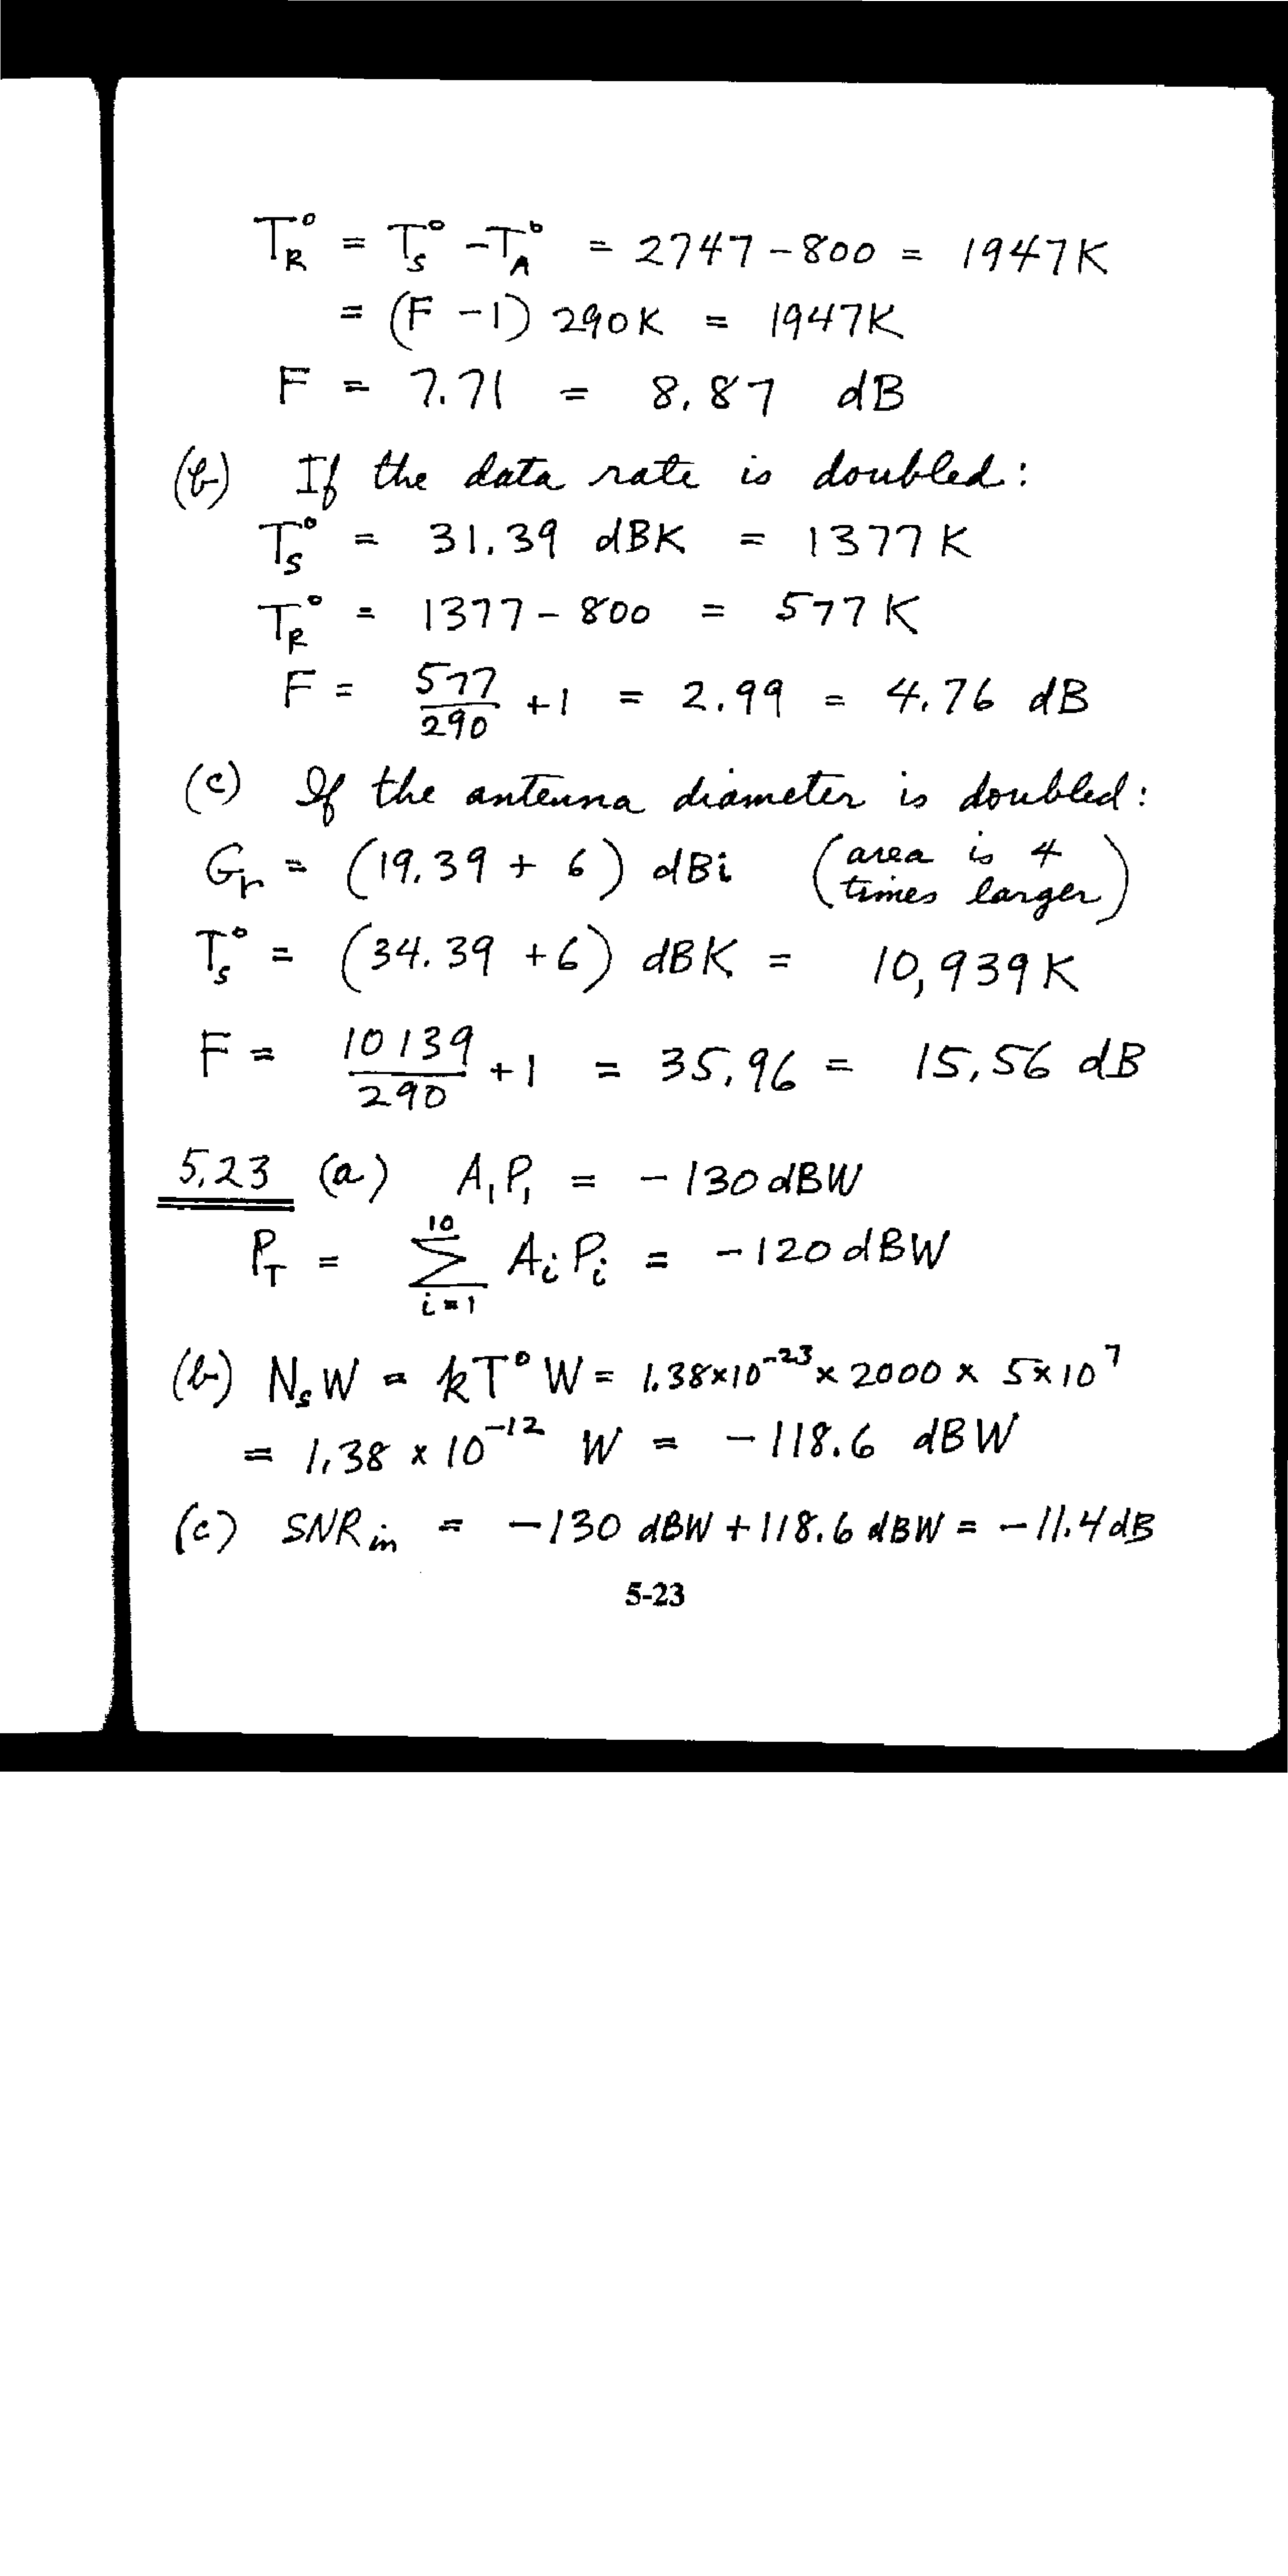 T_R° = T_S° - T_A° = 2747 - 800 = 1947K
= (F - 1) 290K = 1947K
F = 7.71 = 8.87 dB
(b) If the data rate is doubled:
T_S° = 31.39 dBK = 1377 K
T_R° = 1377 - 800 = 577 K
F = 577/290 + 1 = 2.99 = 4.76 dB
(c) If the antenna diameter is doubled:
G_r = (19.39 + 6) dBi (area is 4 times larger)
T_S° = (34.39 + 6) dBK = 10,939K
F = 10139/290 + 1 = 35.96 = 15.56 dB
5.23 (a) A₁P₁ = -130 dBW
P_T = Σ_{i=1}^{10} A_i P_i = -120 dBW
(b) N_s W = kT° W = 1.38×10⁻²³ × 2000 × 5×10⁷
= 1.38 × 10⁻¹² W = -118.6 dBW
(c) SNR_in = -130 dBW + 118.6 dBW = -11.4 dB
5-23